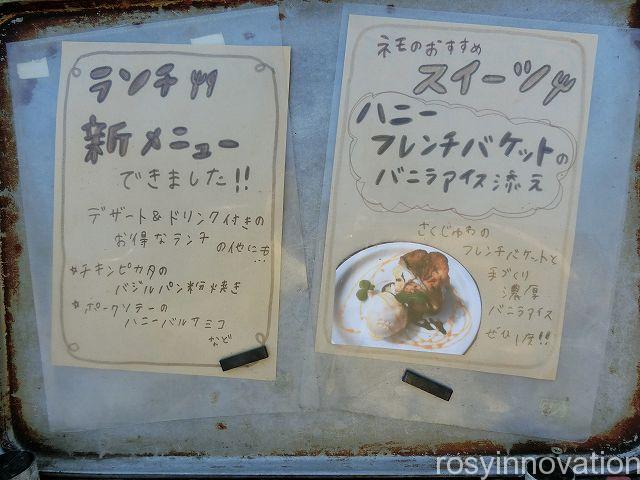 ランチ
新メニュー
できました!!
デザート&ドリンク付きの
お得なランチ
の他にも...
*チキンピカタの
バジルパン粉焼き
*ポークソテーの
ハニーバルサミコ
など
ネモのおすすめ
スイーツ
ハニー
フレンチバケットの
バニラアイス添え
さくじゅわの
フレンチバケットと
手づくり
濃厚
バニラアイス
ぜひ1度!!
rosyinnovation